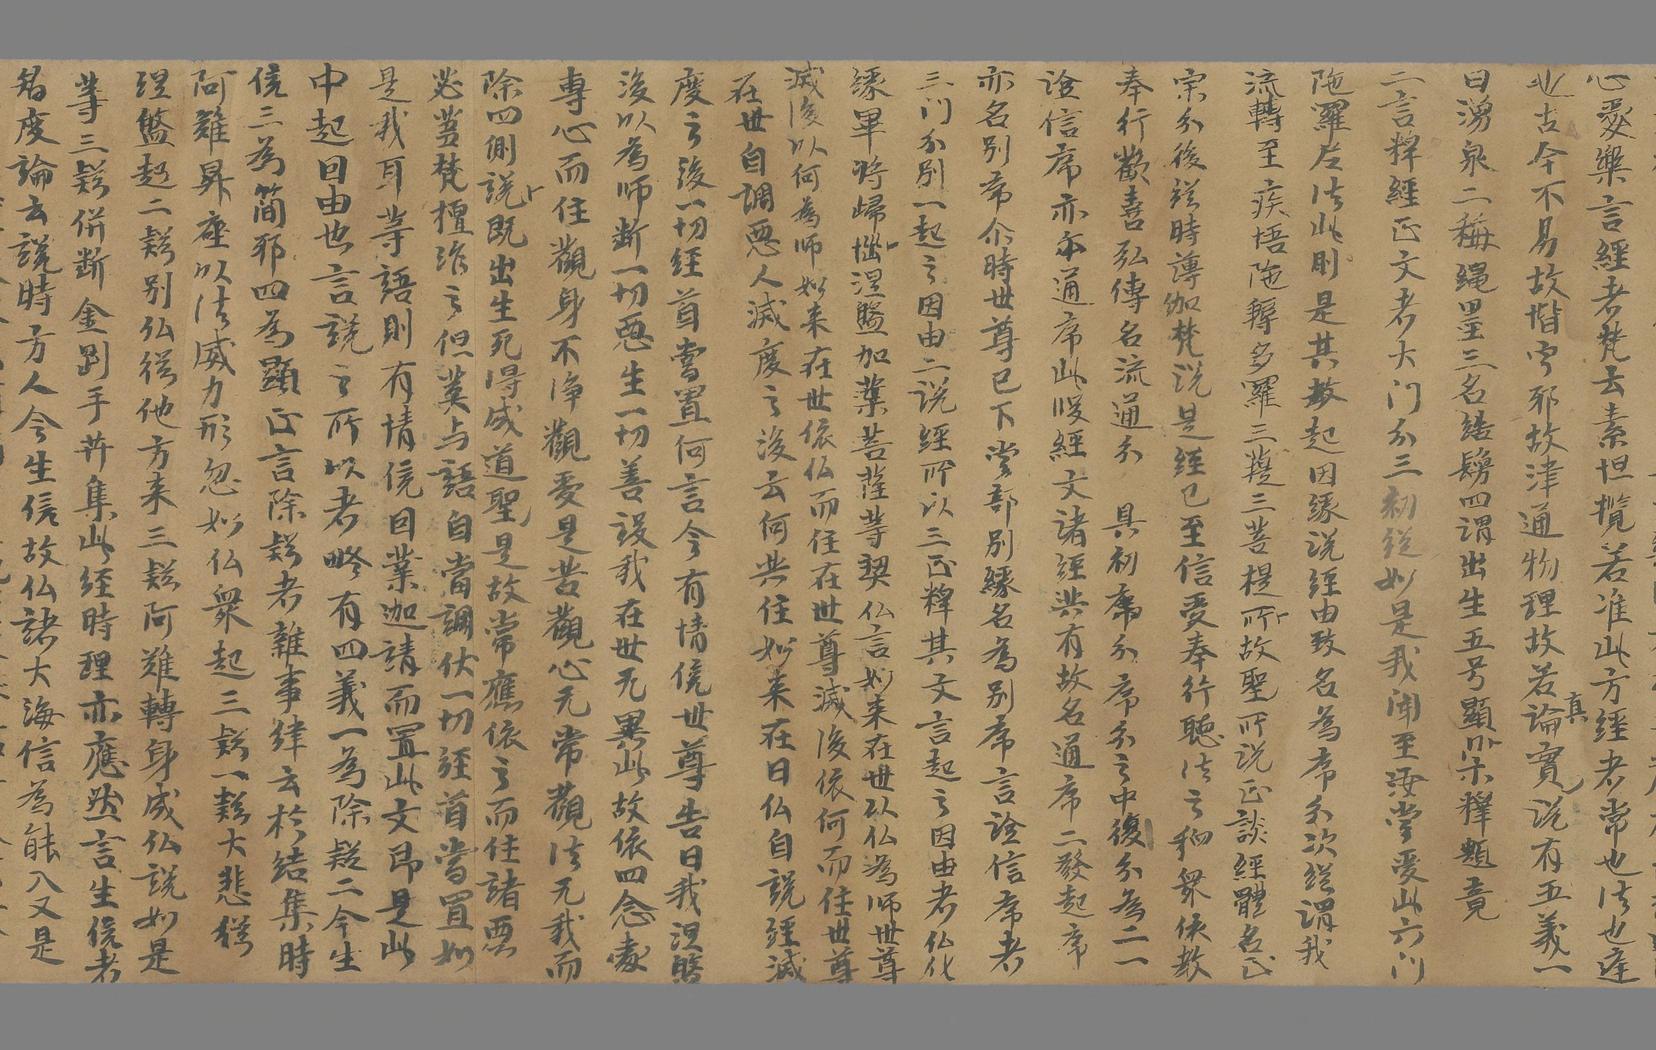 心愛樂言經者梵云素怛攬若准此方經者常也法也逕
古今不易故揩定邪故津通物理故若論實說有五義一
曰湧泉二稱繩墨三名結鬘四謂出生五号顯示釋題竟
二言釋經正文者大門分三初從如是我聞至汝當受此六門
陁羅尼法此則是其教起因緣説經由致名為序分次從謂我
流轉至疾悟陁耨多羅三藐三菩提所故聖所説正談經體名正
宗分後從時薄伽梵説是經已至信受奉行聽法之猶衆依教
奉行歡喜弘傳名流通分 具初序分序分之中復分為二一
證信序亦通序此段經文諸經共有故名通序二發起序
亦名別序尒時世尊已下當部別緣名為別序言證信序者
三門分別一起之因由二説經所以三正釋其文言起之因由者仏化
緣畢將歸涅盤加葉菩薩等契仏言如来在世以仏為師世尊
滅後以何為師如来在世依仏而住在世尊滅後依何而住世尊
在世自調惡人滅度之後云何共住如来在日仏自説經滅
度之後一切經首當置何言令有情信世尊告曰我涅盤
後以為師斷一切惡生一切善設我在世无異此故依四念處
專心而住觀身不淨觀受是苦觀心无常觀法无我而
除四倒説既出生死得成道聖是故常應依之而住諸惡
苾蒭梵檀治之但莫与語自當調伏一切經首當置如
是我耳等語則有情信因業迦請而置此文即是此
中起因由也言説之所以者略有四義一為除疑二令生
信三為簡邪四為顯正言除疑者雜事律云於結集時
阿難昇座以法威力形忽如仏衆起三疑一疑大悲從
涅盤起二疑別仏從他方来三疑阿難轉身成仏説如是
等三疑併斷金剛手并集此經時理亦應然言生信者
智度論云説時方人令生信故仏諸大海信為能入又是